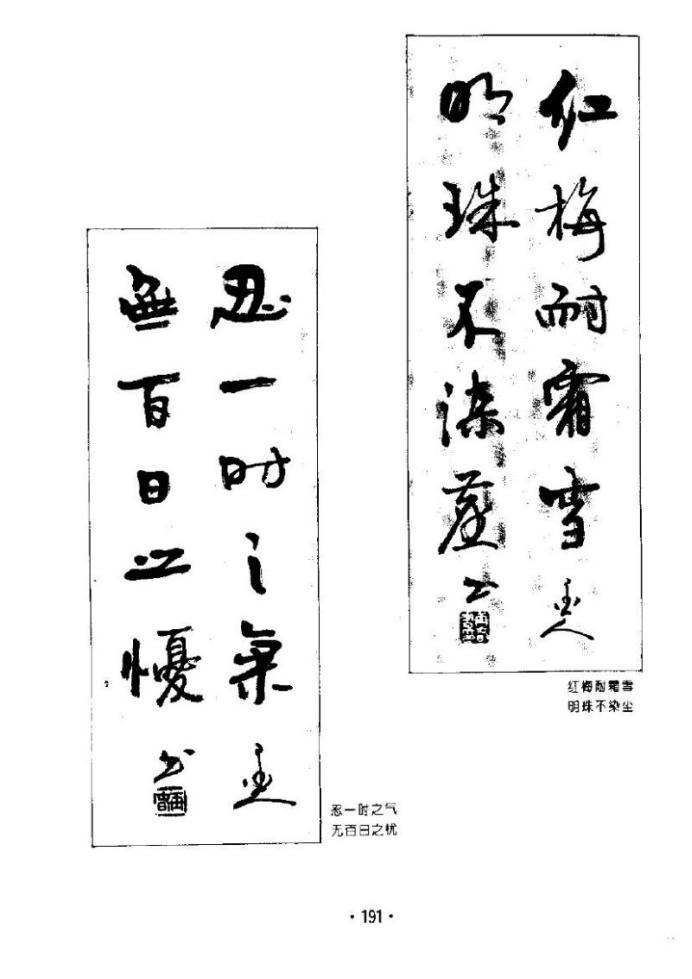 红梅耐霜雪
明珠不染尘
红梅耐霜雪
明珠不染尘
忍一时之气
無百日之憂
忍一时之气
无百日之忧
·191·